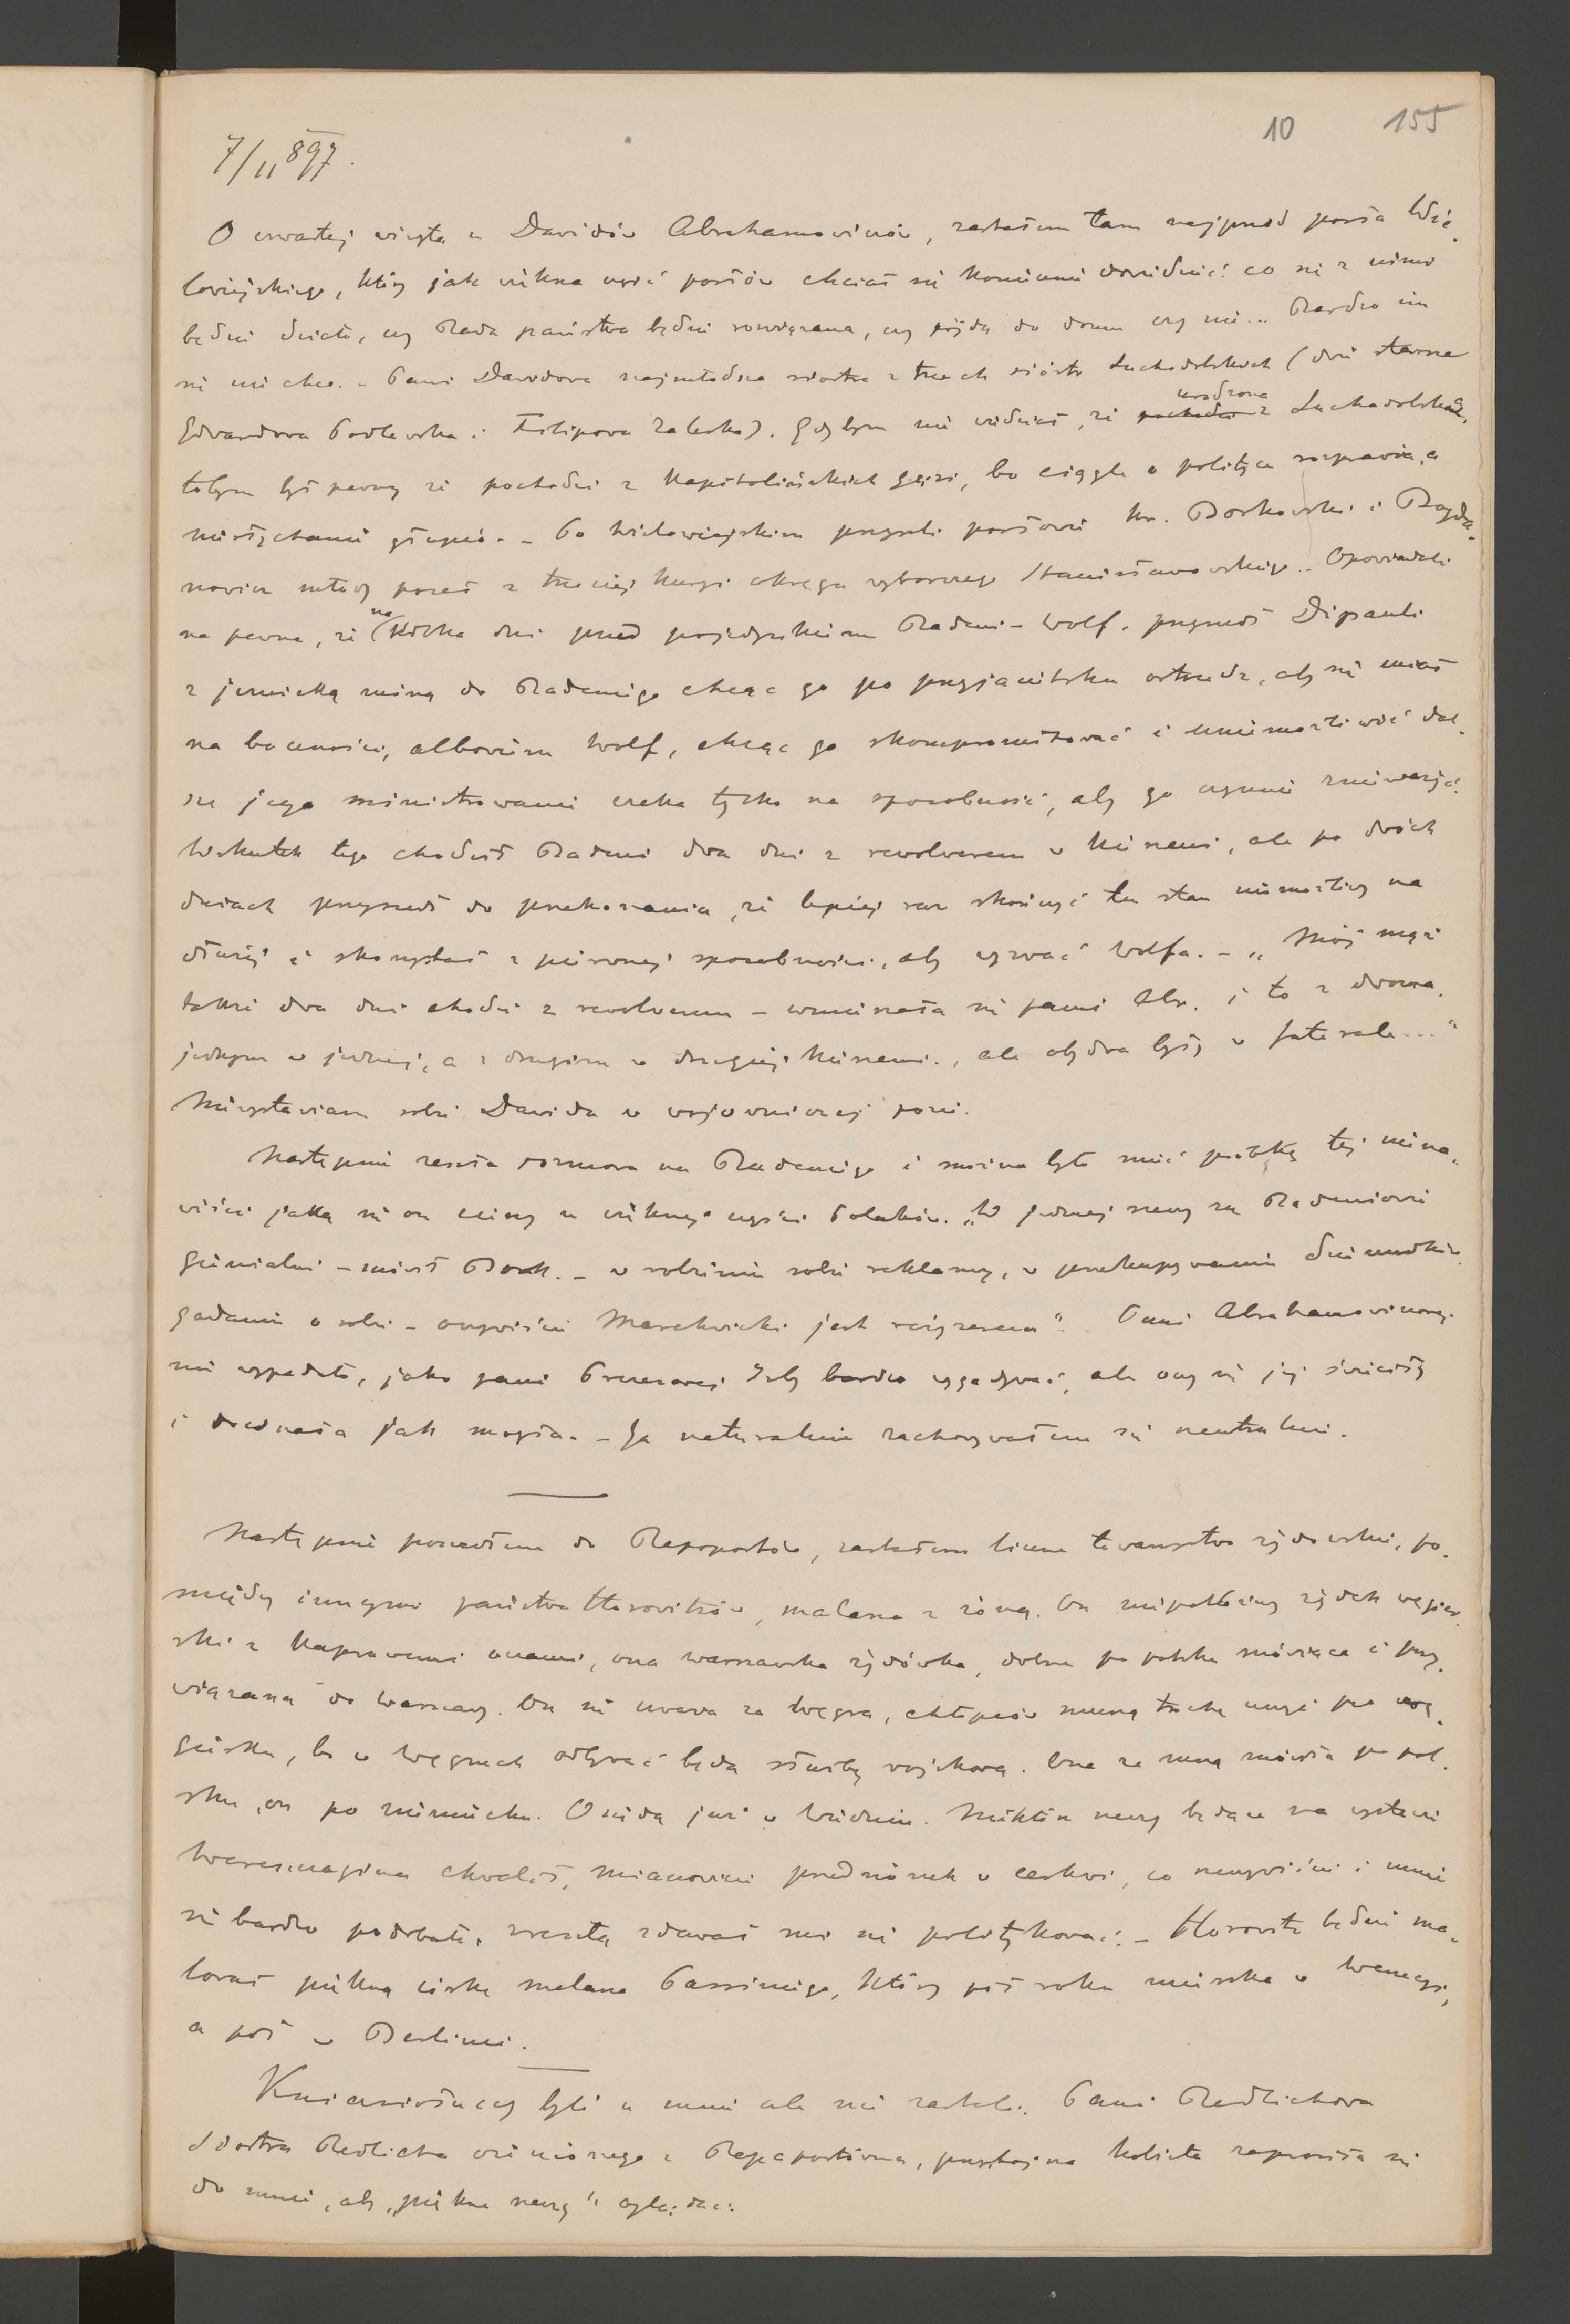 10 155
7/11 897.
O czwartej wizyta u Dawidów Abrahamowiczów, zastałem tam najprzód posła Wie-
lowiejskiego, który jak większa część posłów chciał się koniecznie dowiedzieć co się z nimi
będzie działo, czy Rada państwa będzie rozwiązana, czy pójdą do domu czy nie... Bardzo im
się nie chce. – Pani Dawidowa najmłodsza siostra z trzech sióstr Suchodolskich (dwie starsze
Edwardowa Podlewska i Filipowa Zaleska). Gdybym nie wiedział, że pochodzi urodzona z Suchodolskich,
tobym był pewny że pochodzi z kapitolińskich gęsi, bo ciągle o polityce rozprawia, a
niesłychanie głupio. – Po Wielowiejskim przyszli posłowie hr. Borkowski i Bogda-
nowicz młody poseł z trzeciej kurji okręgu wyborczego Stanisławowskiego. – Opowiadali
na pewne, że na kilka dni przed pojedynkiem Badeni – Wolf, przyszedł Dipauli
z jezuicką miną do Badeniego chcąc go po przyjacielsku ostrzedz, aby się miał
na baczności, albowiem Wolf, chcąc go skompromitować i uniemożliwić dal-
sze jego ministrowanie czeka tylko na sposobność, aby go czynnie znieważyć.
Wskutek tego chodził Badeni dwa dni z rewolwerem w kieszeni, ale po dwóch
dniach przyszedł do przekonania, że lepiej raz skończyć ten stan niemożliwy na
dłużej i skorzystał z pierwszej sposobności, aby wyzwać Wolfa. – „Mój mąż
także dwa dni chodził z rewolwerem – wmieszała się pani Abr. i to z dwoma,
jednym w jednej, a z drugim w drugiej kieszeni, ale obydwa były w futerale..."
Niewystawiam sobie Dawida w wojowniczej pozie.
Następnie zeszła rozmowa na Badeniego i można było mieć próbkę tej niena-
wiści jaką się on cieszy u większej części Polaków. „W jednej rzeczy są Badeniowie
genialni – mówił Bork. – w robieniu sobie reklamy, w przekupywaniu dzienników,
gadaniu o sobie – oczywiście Marchwicki jest reżyserem". Pani Abrahamowiczowej
nie wypadało, jako pani Prezesowej Izby bardzo wygadywać, ale oczy się jej świeciły
i docinała jak mogła. – Ja naturalnie zachowywałem się neutralnie.
Następnie poszedłem do Rapoportów, zastałem liczne towarzystwo żydowskie, po-
między innymi państwa Horovitzów, malarza z żoną. On niepokaźny żydek węgier-
ski z kaprawemi oczami, ona warszawska żydówka, dobrze po polsku mówiąca i przy-
wiązana do Warszawy. On się uważa za Węgra, chłopców muszą trochę uczyć po wę-
giersku, bo w Węgrzech odbywać będą służbę wojskową. Ona ze mną mówiła po pol-
sku, on po niemiecku. Osiędą już w Wiedniu. Niektóre rzeczy będące na wystawie
Wereszczagina chwalił, mianowicie przedsionek w cerkwi, co rzeczywiście i mnie
się bardzo podobało, zresztą zdawał mi się politykować. – Horovitz będzie ma-
lował piękną córkę malarza Passiniego, który pół roku mieszka w Wenecyi,
a pół w Berlinie.
Kniaziołuccy byli u mnie ale nie zastali. Pani Redlichowa
siostra Redlicha ożenionego z Rapaportówną, przystojna kobieta zaprosiła się
do mnie, aby „piękne rzeczy" oglądać.